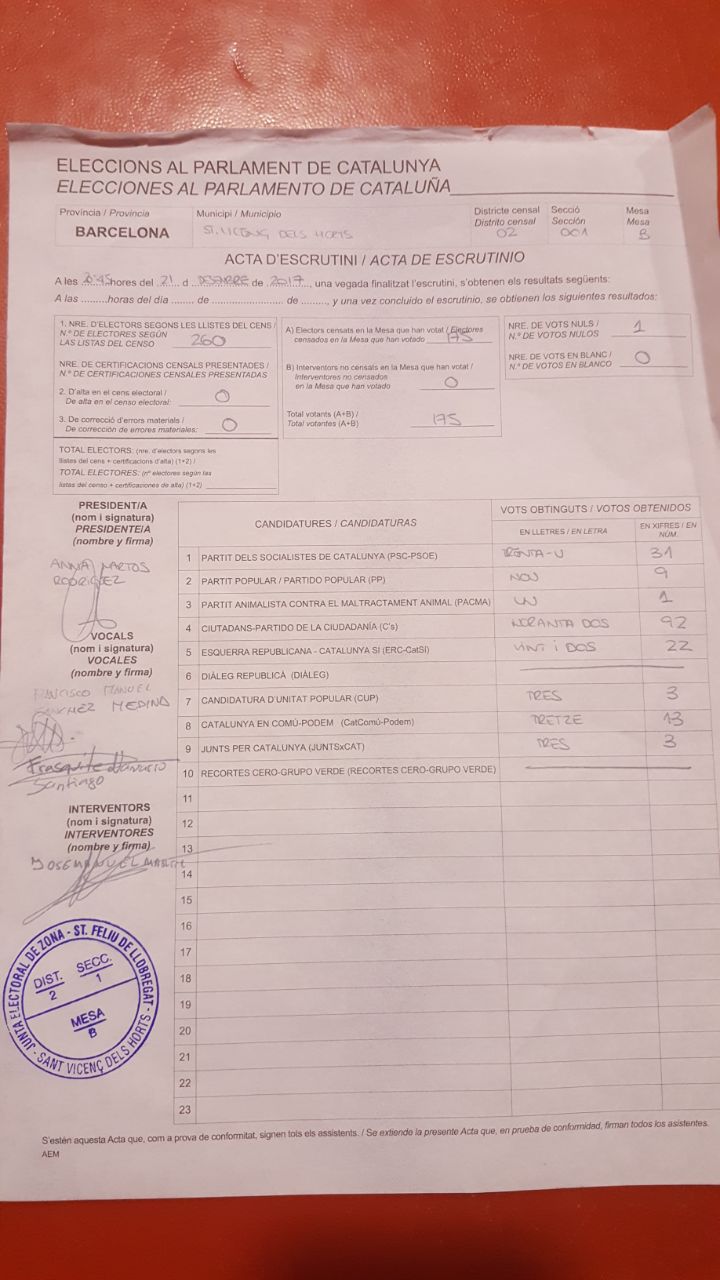 ELECCIONS AL PARLAMENT DE CATALUNYA
ELECCIONES AL PARLAMENTO DE CATALUÑA
Província / Provincia
BARCELONA
Municipi / Municipio
ST. VICENÇ DELS HORTS
Districte censal
Distrito censal
02
Secció
Sección
001
Mesa
Mesa
B
ACTA D'ESCRUTINI / ACTA DE ESCRUTINIO
A les hores del 21 d DESEMBRE de 2017, una vegada finalitzat l'escrutini, s'obtenen els resultats següents:
A las .........horas del día ....... de ....................... de ........, y una vez concluido el escrutinio, se obtienen los siguientes resultados:
1. NRE. D'ELECTORS SEGONS LES LLISTES DEL CENS /
N.º DE ELECTORES SEGÚN
LAS LISTAS DEL CENSO 260
NRE. DE CERTIFICACIONS CENSALS PRESENTADES /
N.º DE CERTIFICACIONES CENSALES PRESENTADAS
2. D'alta en el cens electoral /
De alta en el censo electoral: 0
3. De correcció d'errors materials /
De corrección de errores materiales: 0
TOTAL ELECTORS: (nre. d'electors segons les
llistes del cens + certificacions d'alta) (1+2) /
TOTAL ELECTORES: (nº electores según las
listas del censo + certificaciones de alta) (1+2)
A) Electors censats en la Mesa que han votat / Electores
censados en la Mesa que han votado 175
B) Interventors no censats en la Mesa que han votat /
Interventores no censados
en la Mesa que han votado 0
Total votants (A+B) /
Total votantes (A+B) 175
NRE. DE VOTS NULS /
N.º DE VOTOS NULOS 1
NRE. DE VOTS EN BLANC /
N.º DE VOTOS EN BLANCO 0
PRESIDENT/A
(nom i signatura)
PRESIDENTE/A
(nombre y firma)
ANNA MARTOS
RODRIGUEZ
VOCALS
(nom i signatura)
VOCALES
(nombre y firma)
FRANCISCO MANUEL
SANCHEZ MEDINA
Santiago
INTERVENTORS
(nom i signatura)
INTERVENTORES
(nombre y firma)
JOSE MANUEL
CANDIDATURES / CANDIDATURAS
VOTS OBTINGUTS / VOTOS OBTENIDOS
EN LLETRES / EN LETRA
EN XIFRES / EN NÚM.
1 PARTIT DELS SOCIALISTES DE CATALUNYA (PSC-PSOE) TRENTA-U 31
2 PARTIT POPULAR / PARTIDO POPULAR (PP) NOU 9
3 PARTIT ANIMALISTA CONTRA EL MALTRACTAMENT ANIMAL (PACMA) UN 1
4 CIUTADANS-PARTIDO DE LA CIUDADANÍA (C's) NORANTA DOS 92
5 ESQUERRA REPUBLICANA - CATALUNYA SÍ (ERC-CatSí) VINT i DOS 22
6 DIÀLEG REPUBLICÀ (DIÀLEG)
7 CANDIDATURA D'UNITAT POPULAR (CUP) TRES 3
8 CATALUNYA EN COMÚ-PODEM (CatComú-Podem) TRETZE 13
9 JUNTS PER CATALUNYA (JUNTSxCAT) TRES 3
10 RECORTES CERO-GRUPO VERDE (RECORTES CERO-GRUPO VERDE)
11
12
13
14
15
16
17
18
19
20
21
22
23
JUNTA ELECTORAL DE ZONA - ST. FELIU DE LLOBREGAT -
DIST. 2
SECC. 1
MESA B
SANT VICENÇ DELS HORTS -
S'estén aquesta Acta que, com a prova de conformitat, signen tots els assistents. / Se extiende la presente Acta que, en prueba de conformidad, firman todos los asistentes.
AEM